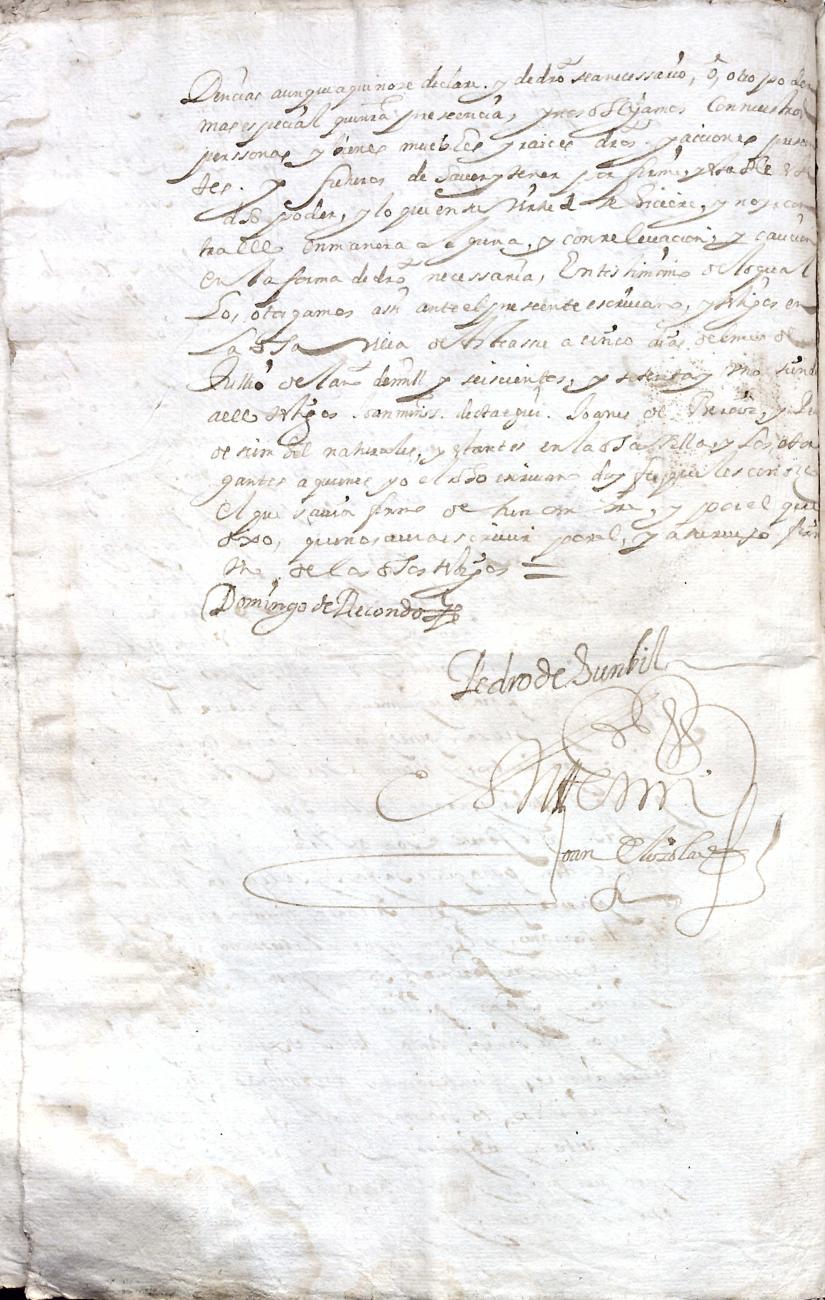 Dencias aunque aqui no se declare. y de dro sea necessario, o, otro poder
mas especial quinra pressencia, y nos obligamos con nuestras
perssonas y bienes muebles y raices dros. y acciones presen
tes. y futuros de haver y tener por firme, y estable este
dho poder, y lo que en su virtud se hiciere, y no yr con
tra ello en manera alguna, y con relevacion, y caucion
en la forma de dro necessaria, En testimonio de lo qual
Los, otorgamos assi ante el presente escrivano, y testigos en
La dha Villa de a cinco dias del mes de
Jullio de el año de mill y seiscientos, y sesenta y uno siendo
a ello testigos Joanes de y
naturales, y estantes en la dha Villa, y Los otor
gantes a quienes yo el dho escrivano doy fe que les conozco
El que savia firmo de su nombre, y por el que
dixo, que no savia escrivir por el, y a su ruego firmo
Uno de los dhos testigos =
Domingo de Recondo
Pedro de Sunbil
Ante mi
Joan